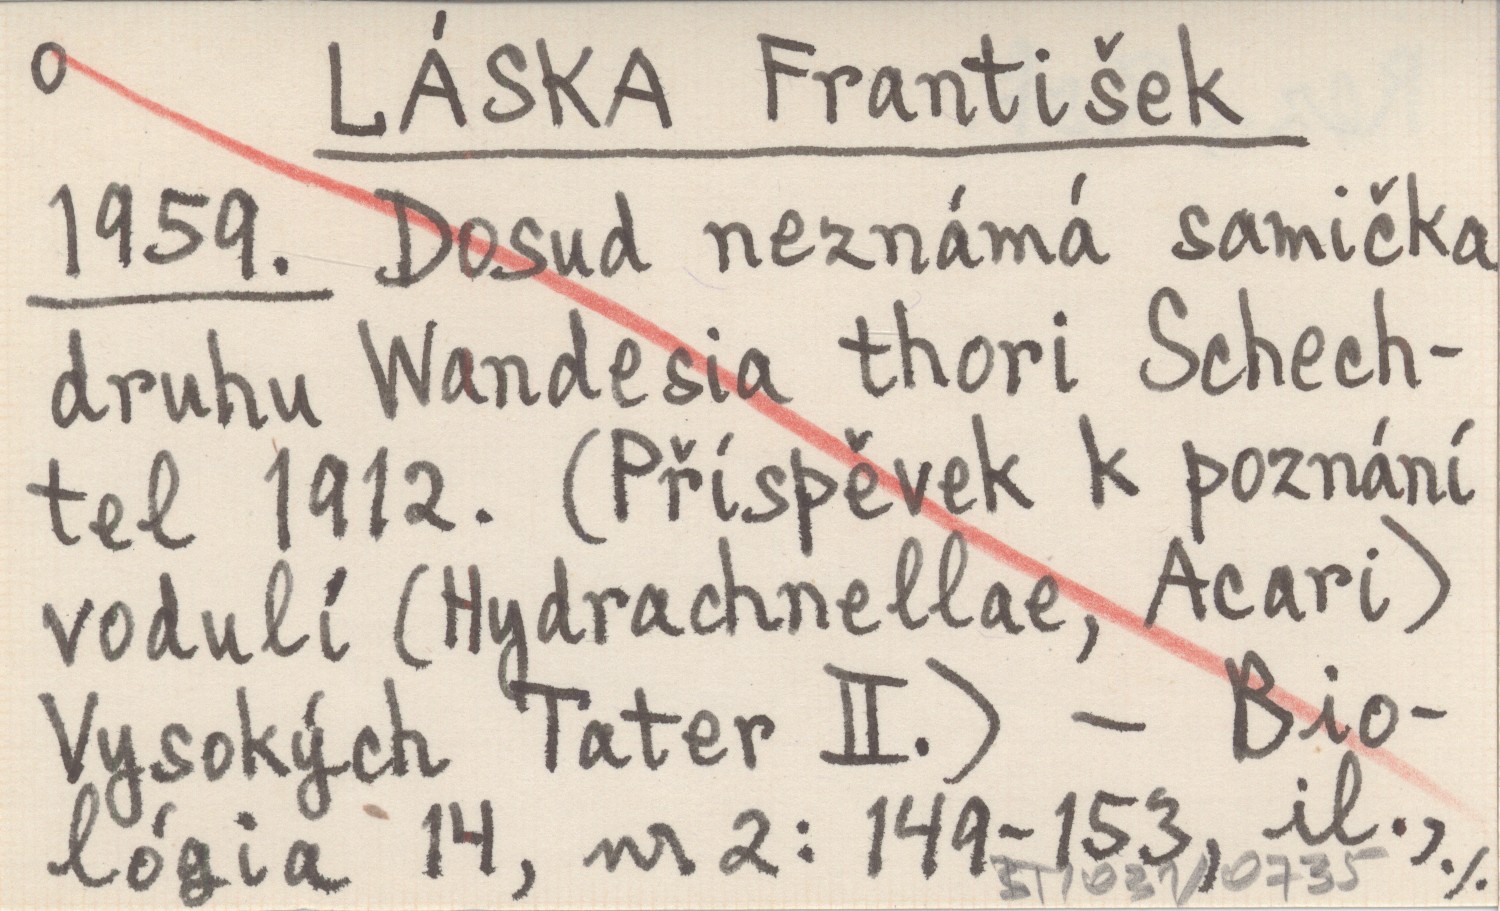 o LÁSKA František
1959. Dosud neznámá samička
druhu Wandesia thori Schech-
tel 1912. (Příspěvek k poznání
vodulí (Hydrachnellae, Acari)
Vysokých Tater II.) – Bio-
lógia 14, nr 2: 149-153, il., ./.
0735